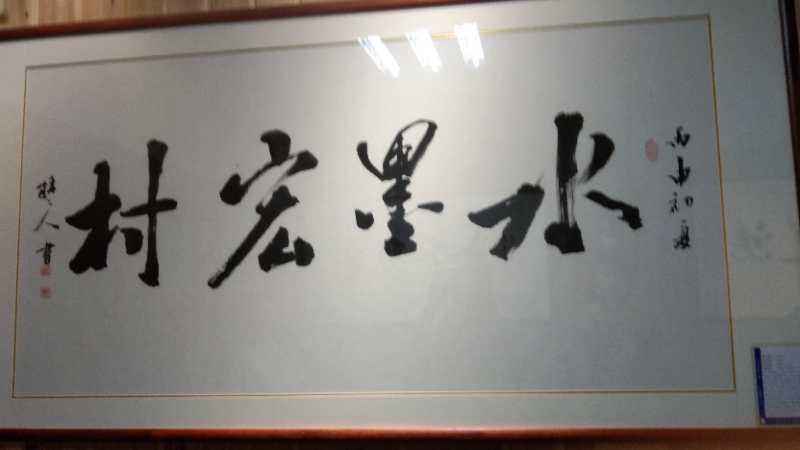 丙申初夏
水墨宏村
人書